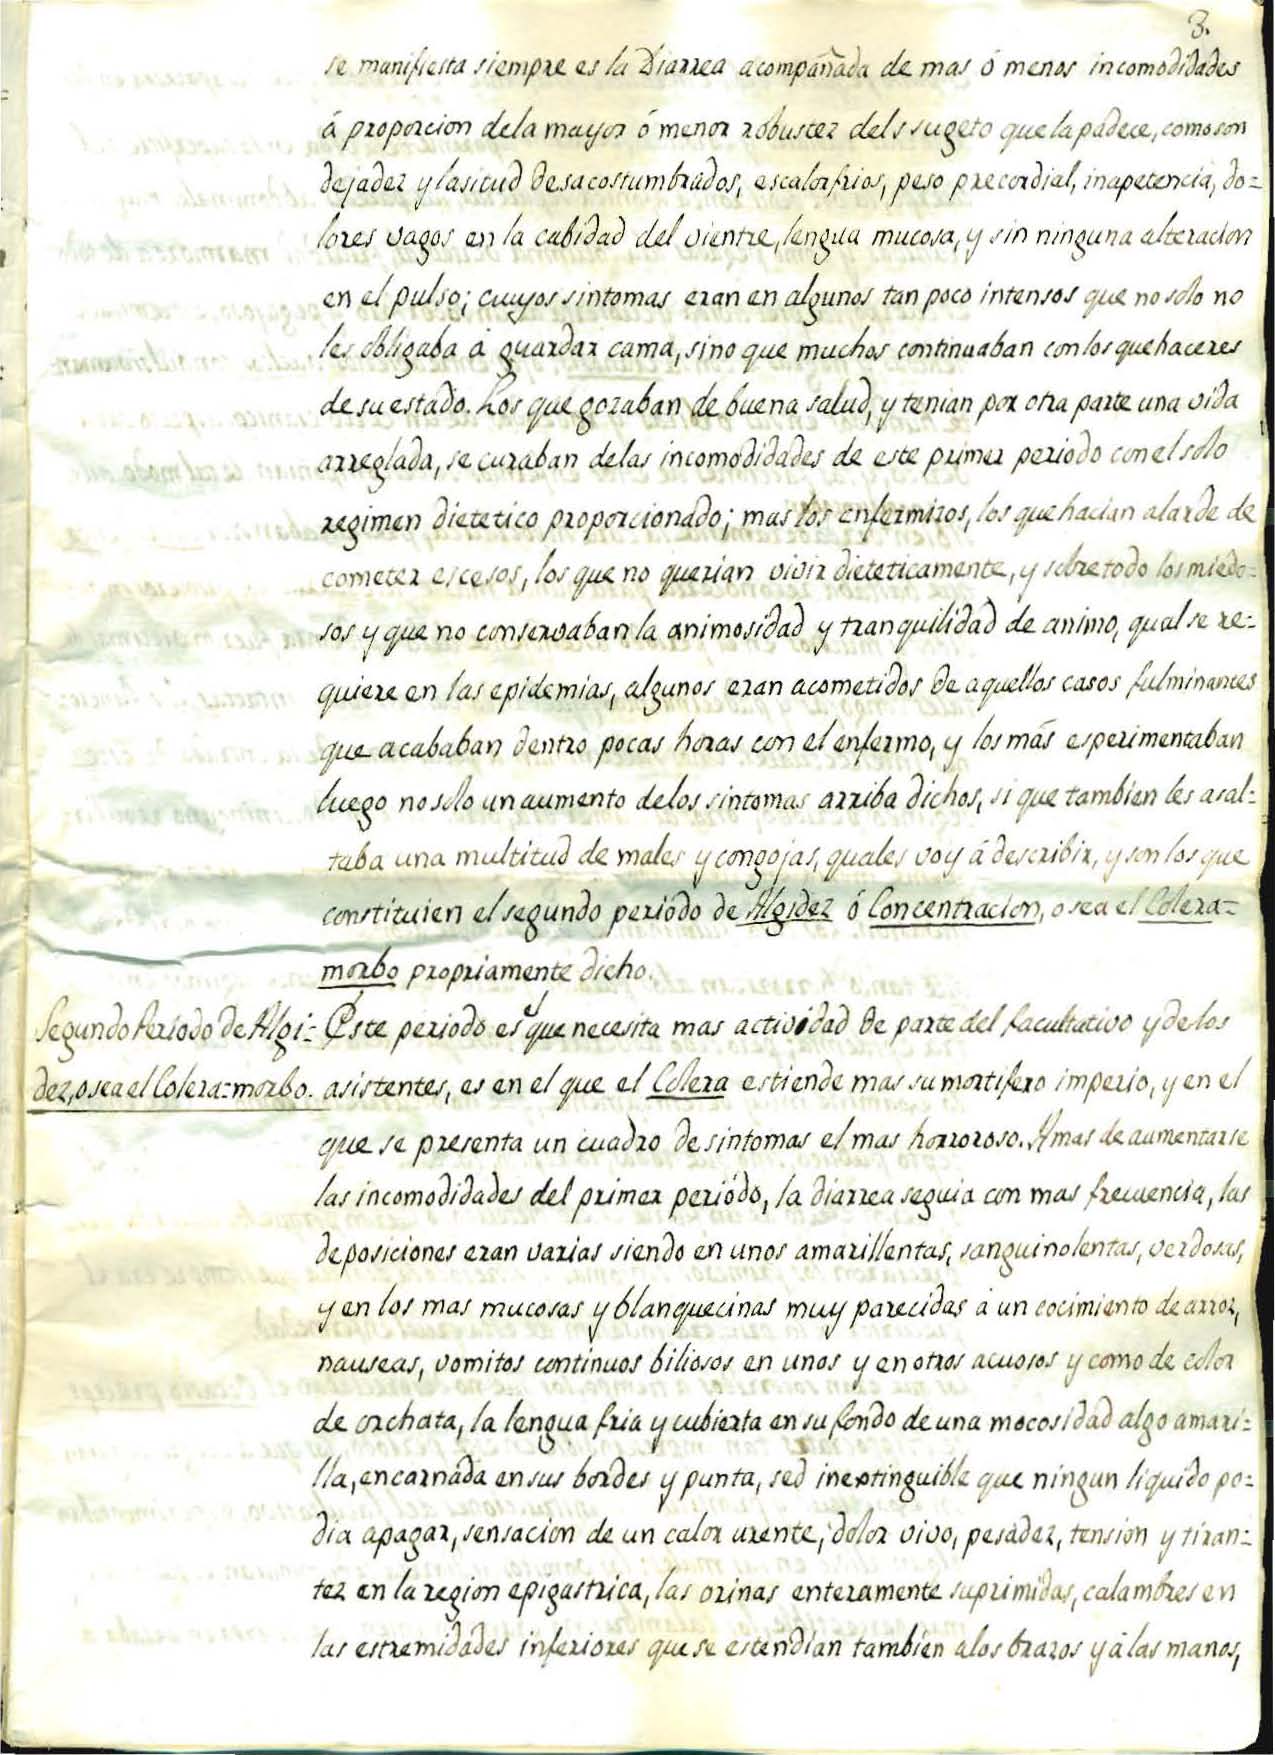 3.
se manifiesta siempre es la Diarrea acompañada de mas ó menos incomodidades
á proporcion dela mayor ó menor robustez dels sugeto que la padece, como son
dejadez y lasitud desacostumbrados, escalorfrios, peso precordial, inapetencia, do=
lores vagos en la cabidad del vientre, lengua mucosa, y sin ninguna alteracion
en el pulso; cuyos sintomas eran en algunos tan poco intensos que no solo no
les obligaba á guardar cama, sino que muchos continuaban con los quehaceres
de su estado. Los que gozaban de buena salud, y tenian por otra parte una vida
arreglada, se curaban delas incomodidades de este primer periodo con el solo
regimen dietetico proporcionado; mas los enfermizos, los que hacian alarde de
cometer escesos, los que no querian vivir dieteticamente, y sobre todo los miedo=
sos y que no conservaban la animosidad y tranquilidad de animo, qual se re=
quiere en las epidemias, algunos eran acometidos de aquellos casos fulminantes
que acababan dentro pocas horas con el enfermo, y los más esperimentaban
luego no solo un aumento delos sintomas arriba dichos, si que tambien les asal=
taba una multitud de males y congojas, quales voy á describir, y son los que
constituien el segundo periódo de Algidez ó Concentracion, o sea el Colera=
morbo propriamente dicho.
Segundo Periodo de Algi=
dez, o sea el Colera=morbo.
Este periodo es el que necesita mas actividad de parte del facultativo y de los
asistentes, es en el que el Colera estiende mas su mortifero imperio, y en el
que se presenta un cuadro de sintomas el mas horroroso. A mas de aumentarse
las incomodidades del primer periódo, la diarrea seguia con mas frecuencia, las
deposiciones eran varias siendo en unos amarillentas, sanguinolentas, verdosas,
y en los mas mucosas y blanquecinas muy parecidas á un cocimiento de arroz,
nauseas, vomitos continuos biliosos en unos y en otros acuosos y como de color
de orchata, la lengua fria y cubierta en su fondo de una mocosidad algo amari=
lla, encarnada en sus bordes y punta, sed inextinguible que ningun liquido po=
dia apagar, sensacion de un calor urente, dolor vivo, pesadez, tension y tiran=
tez en la region epigastrica, las orinas enteramente suprimidas, calambres en
las estremidades inferiores que se estendian tambien a los brazos y á las manos,